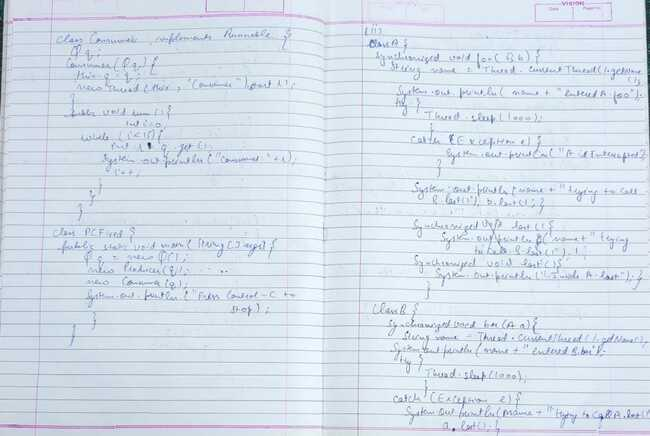 class Consumer implements Runnable {
Q q;
Consumer (Q q) {
this.q = q;
new Thread (this, "Consumer").start ();
}
public void run () {
int i=0;
while (i<15){
q.get ();
System.out.println ("Consumer" + i);
i++;
}
}
}
class PCFixed {
public static void main (String [] args) {
Q q = new Q();
new Producer (q);
new Consumer (q);
System.out.println ("Press Control-C to
stop);
}
}
VISION
Date
Page No.
class A {
Synchronized void foo( B b) {
String name = Thread.currentThread().getName
();
System.out.println( name + "entered A.foo");
try {
Thread.sleep (1000);
}
catch (Exception e) {
System.out.println( "A is Interrupted");
}
}
System.out.println (name + "trying to call
B.last()"; b.last(); }
Synchronized void last () {
System.out.println (name + "trying
to call B.last()");
Synchronized void last() {
System.out.println ("Inside A.last"); }
}
Class B {
Synchronized void bar (A a) {
String name = Thread.currentThread().getName();
System.out.println (name + "entered B.bar");
try {
Thread.sleep (1000);
}
catch (Exception e) {
System.out.println (name + "trying to call A.last()
a.last(); }